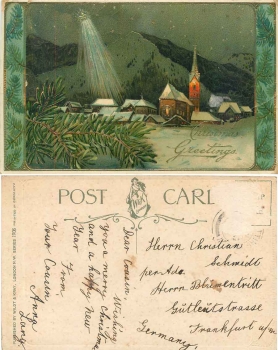 Christmas
Greetings
POST CARD
Dear Cousin Wishing
you a merry Christmas
and a happy New
Year From
Your Cousin
Anna
Herrn Christian
Schmidt
per Ads.
Herrn Blumentritt
Gutleutstrasse
Frankfurt a/m
Germany